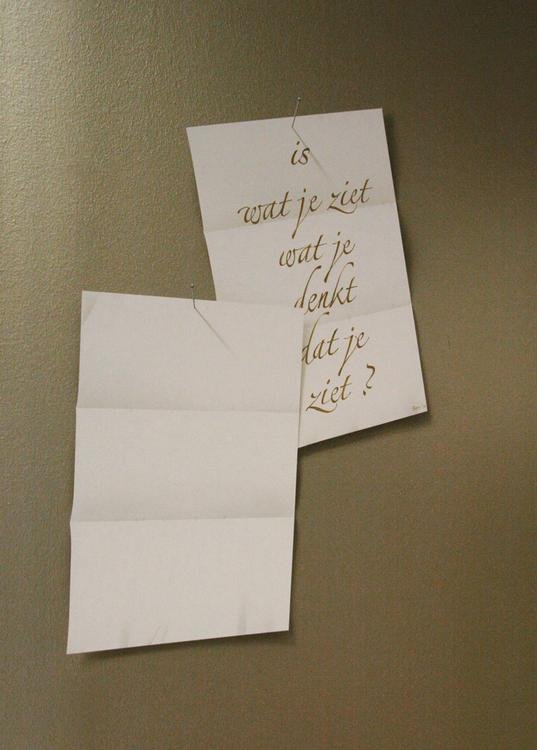 is
wat je ziet
wat je
denkt
dat je
ziet ?